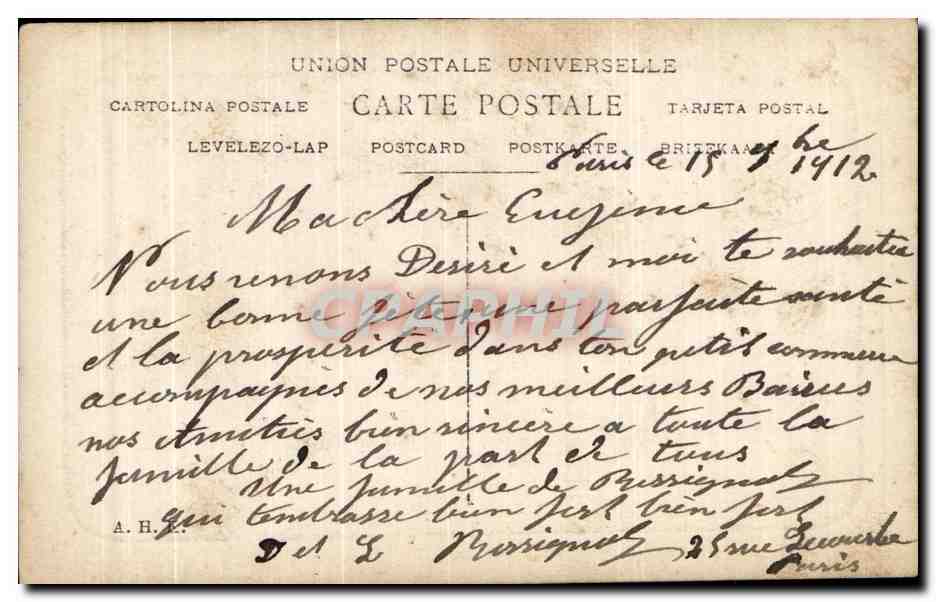 UNION POSTALE UNIVERSELLE
CARTOLINA POSTALE CARTE POSTALE TARJETA POSTAL
LEVELEZO-LAP POSTCARD POSTKARTE BRIEFKAART
Paris le 15 9bre 1912
Ma chère Eugenie
Nous venons Desiré et moi te souhaiter
une bonne fête, une parfaite santé
et la prosperité dans ton petit commerce
accompagnés de nos meilleurs Baisers
nos Amitiès bien sincère a toute la
famille de la part de tous
Une famille de Rossignol
qui tembrasse bien fort bien fort
A. H.
D et L Rossignol 25 rue Lecourbe
Paris
CPAPHIL